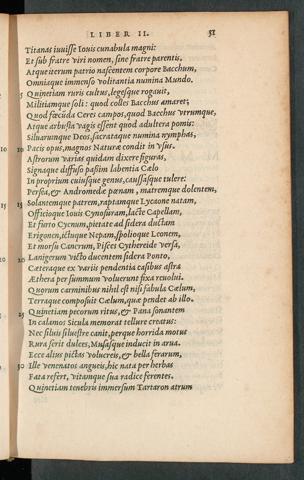 LIBER II. 51
Titanas iuuisse Iouis cunabula magni:
Et sub fratre viri nomen, sine fratre parentis,
Atque iterum patrio nascentem corpore Bacchum,
Omniaque immenso volitantia numina Mundo.
5 Quinetiam ruris cultus, legesque rogauit,
Militiamque soli: quod colles Bacchus amaret;
Quod fœcūda Ceres campos, quod Bacchus vtrumque,
Atque arbusta vagis essent quod adultera pomis:
Siluarumque Deos, sacrataque numina nymphas,
10 Pacis opus, magnos Naturæ condit in vsus.
Astrorum varias quidam dixere figuras,
Signaque diffuso paßim labentia Cælo
In proprium cuiusque genus, caussasque tulere:
Persea, & Andromedæ pœnam, matremque dolentem,
15 Solantemque patrem, raptamque Lycaone natam,
Officioque Iouis Cynosuram, lacte Capellam,
Et furto Cycnum, pietate ad sidera ductam
Erigonen, ictuque Nepam, spolioque Leonem,
Et morsu Cancrum, Pisces Cythereide versa,
20 Lanigerum victo ducentem sidera Ponto,
Cæteraque ex variis pendentia casibus astra
Æthera per summum voluerunt fixa reuolui.
Quorum carminibus nihil est nisi fabula Cælum,
Terraque composuit Cælum, quæ pendet ab illo.
25 Quinetiam pecorum ritus, & Pana sonantem
In calamos Sicula memorat tellure creatus:
Nec siluis siluestre canit, perque horrida motus
Rura serit dulces, Musasque inducit in arua.
Ecce alius pictas volucreis, & bella ferarum,
30 Ille venenatos angueis, hic nata per herbas
Fata refert, vitamque sua radice ferentes.
Quinetiam tenebris immersum Tartaron atrum